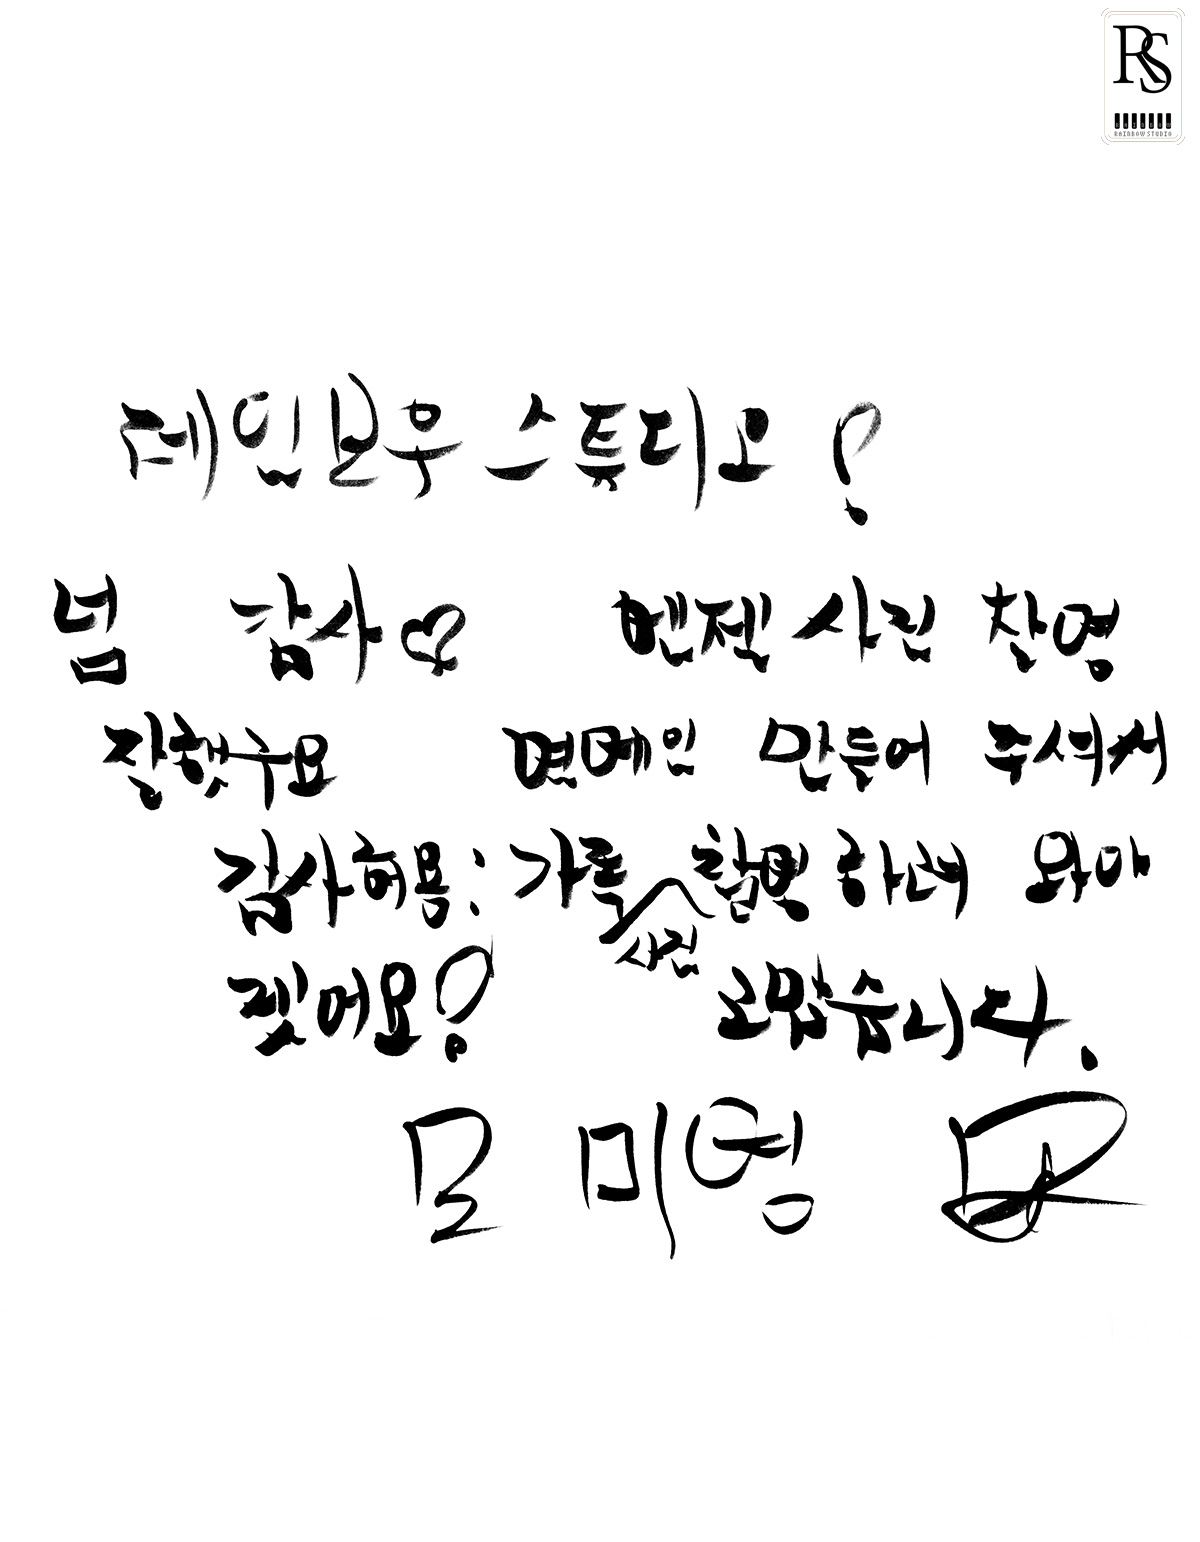 RS
RAINBOW STUDIO
레인보우 스튜디오!
넘 감사♡ 멘젤 사진 찰영
잘했구요 만들어 주셔서
감사해용: 가족 사진 하러 와야
겠어요! 고맙습니다.
모미영